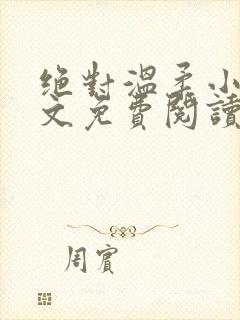 絕對溫柔小
文免費閱讀
周賓